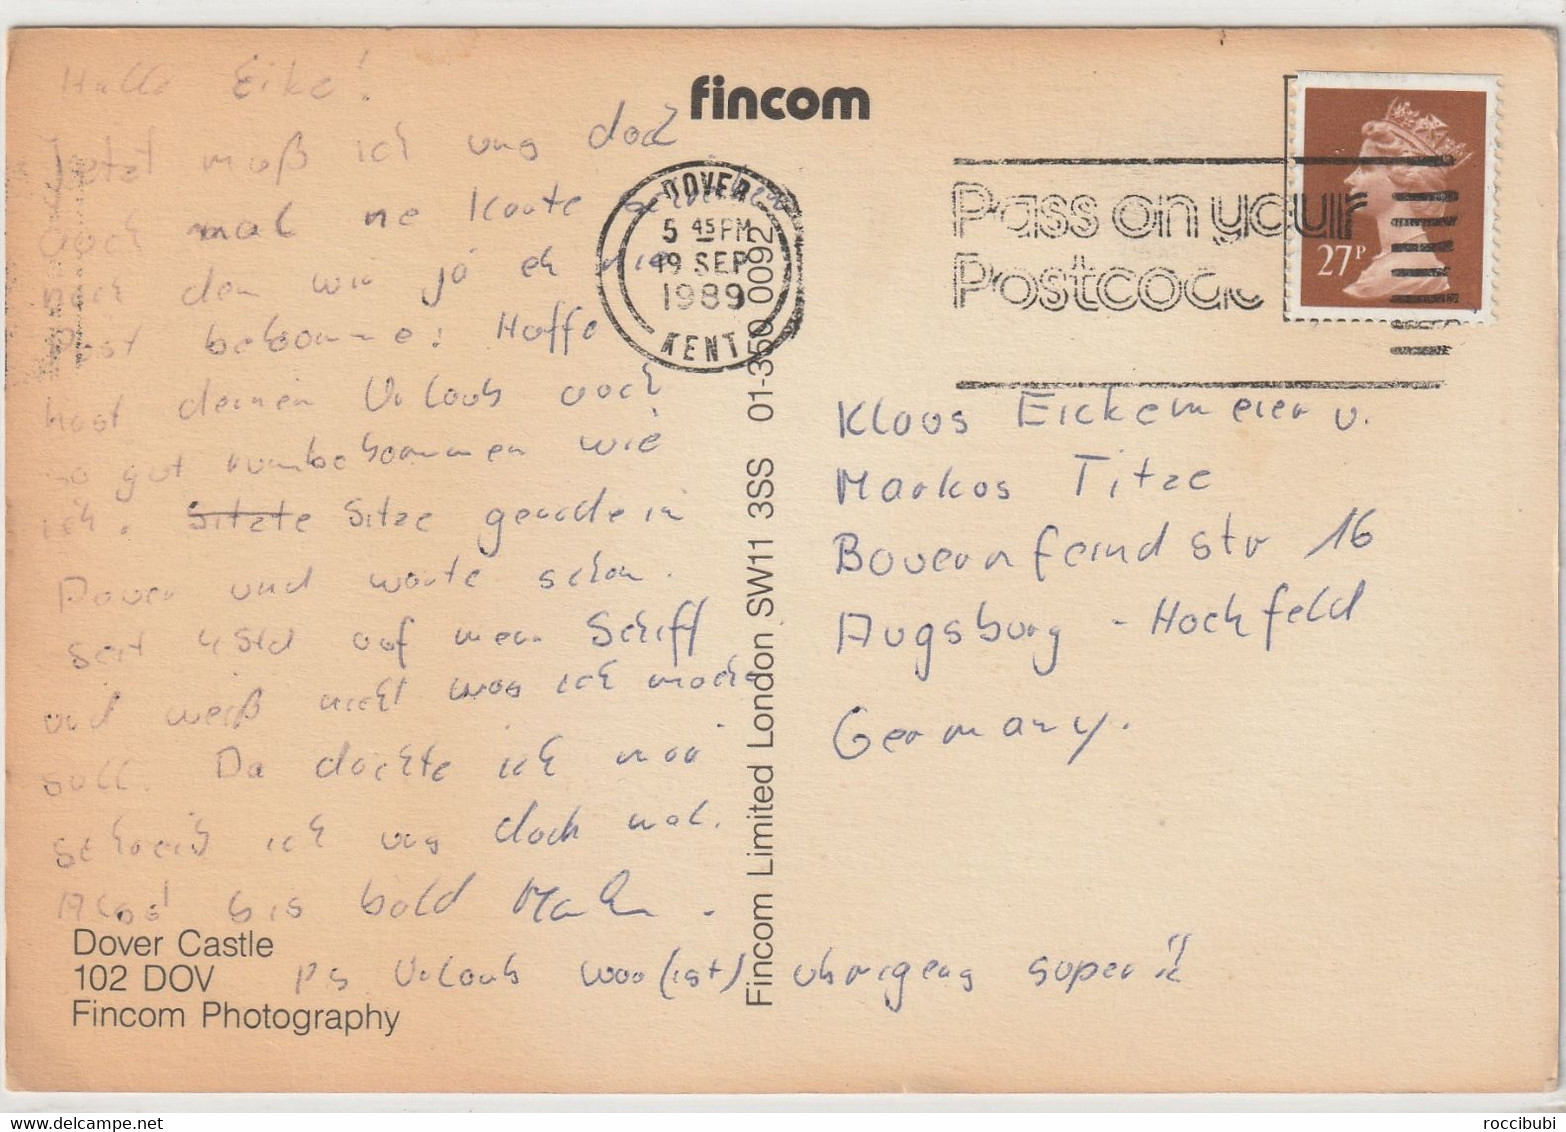 fincom
Hallo Eike!
Jetzt muß ich uns doch
auch mal ne Karte schreiben
den wir ja eh nie
Post bekomme! Hoffe
hast deinen Urlaub auch
so gut rumbekommen wie
ich. Sitzte Sitze gerade in
Dover und warte schon
seit 4 Std auf mein Schiff
und weiß nicht was ich mache
soll. Da dachte ich mir
schreib ich uns doch mal.
Also! bis bald
PS Urlaub war (ist) übrigens super!!
Dover Castle
102 DOV
Fincom Photography
Fincom Limited London SW11 3SS 01-350 0092
DOVER
5 45 PM
19 SEP
1989
KENT
Pass on your
Postcode
27P
Klaus Eickemeier u.
Markus Titze
Bauernfeind str 16
Augsburg - Hochfeld
Germany.
roccibubi